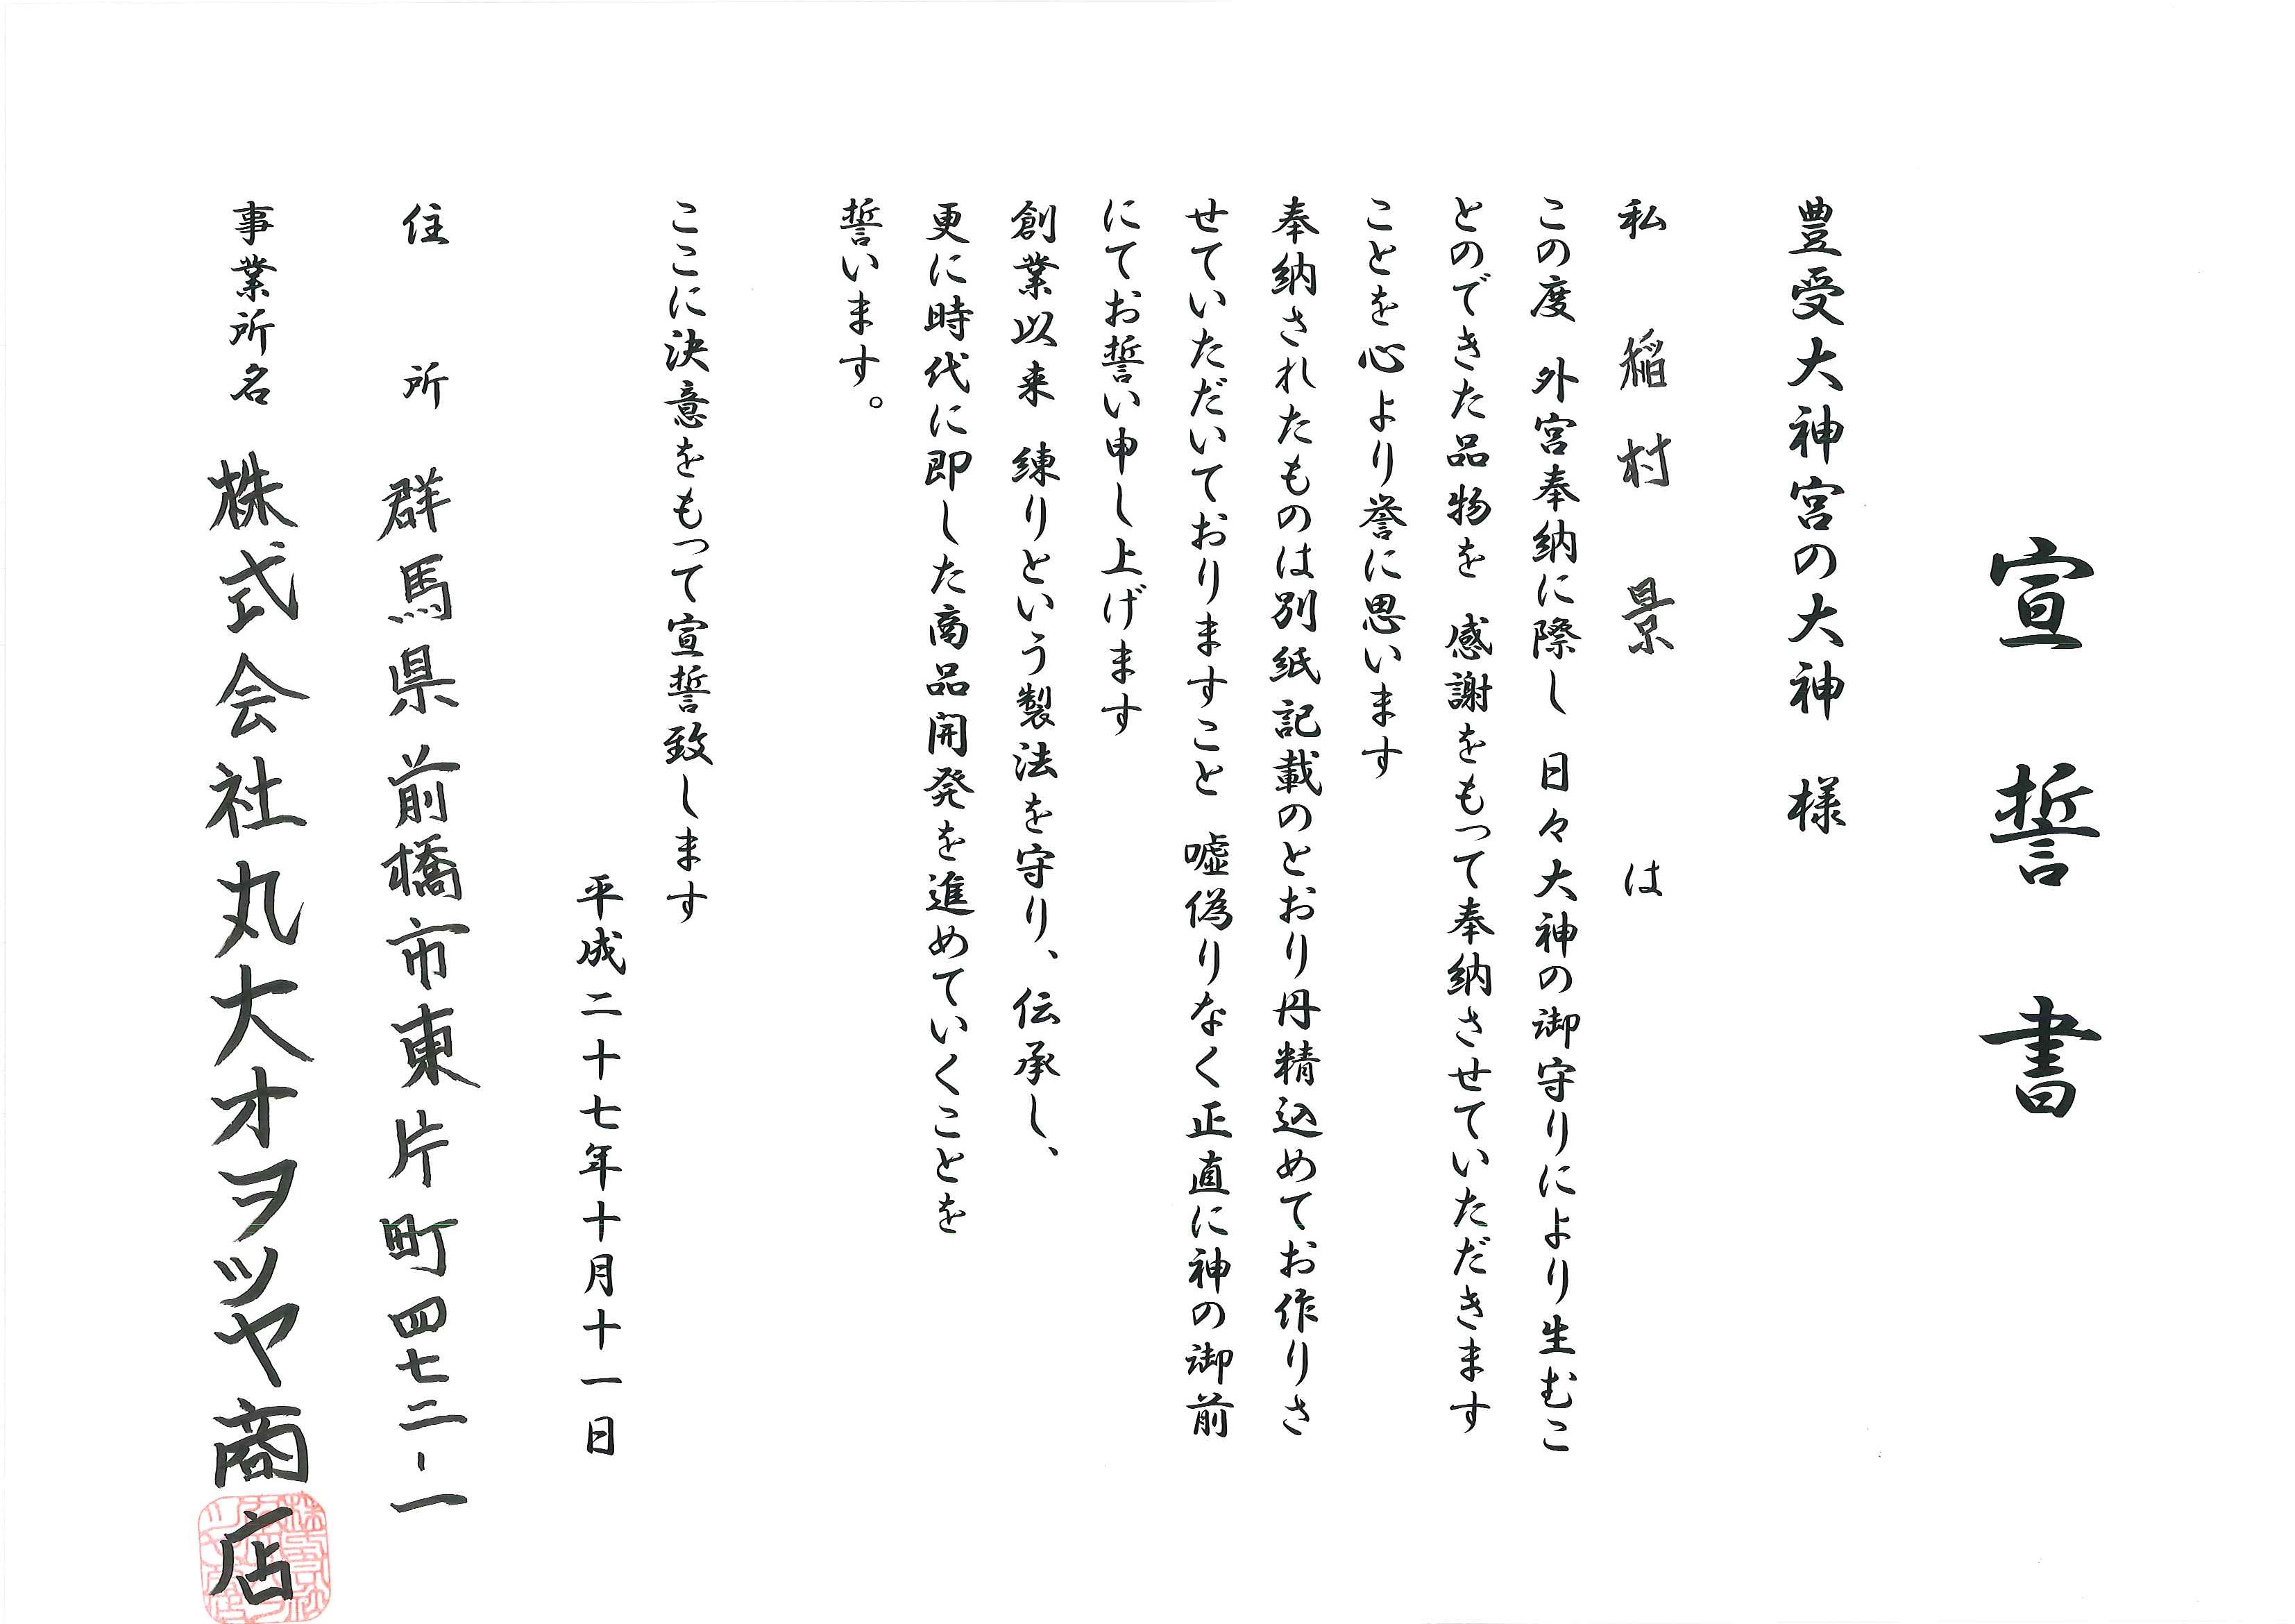 宣誓書
豊受大神宮の大神 様
私 稲村 景 は
この度 外宮奉納に際し 日々大神の御守りにより生むこ
とのできた品物を 感謝をもって奉納させていただきます
ことを心より誉に思います
奉納されたものは別紙記載のとおり丹精込めてお作りさ
せていただいておりますこと 嘘偽りなく正直に神の御前
にてお誓い申し上げます
創業以来 練りという製法を守り、伝承し、
更に時代に即した商品開発を進めていくことを
誓います。
ここに決意をもって宣誓致します
平成二十七年十月十一日
住 所 群馬県前橋市東片町四七二-一
事業所名 株式会社丸大オヲツヤ商店